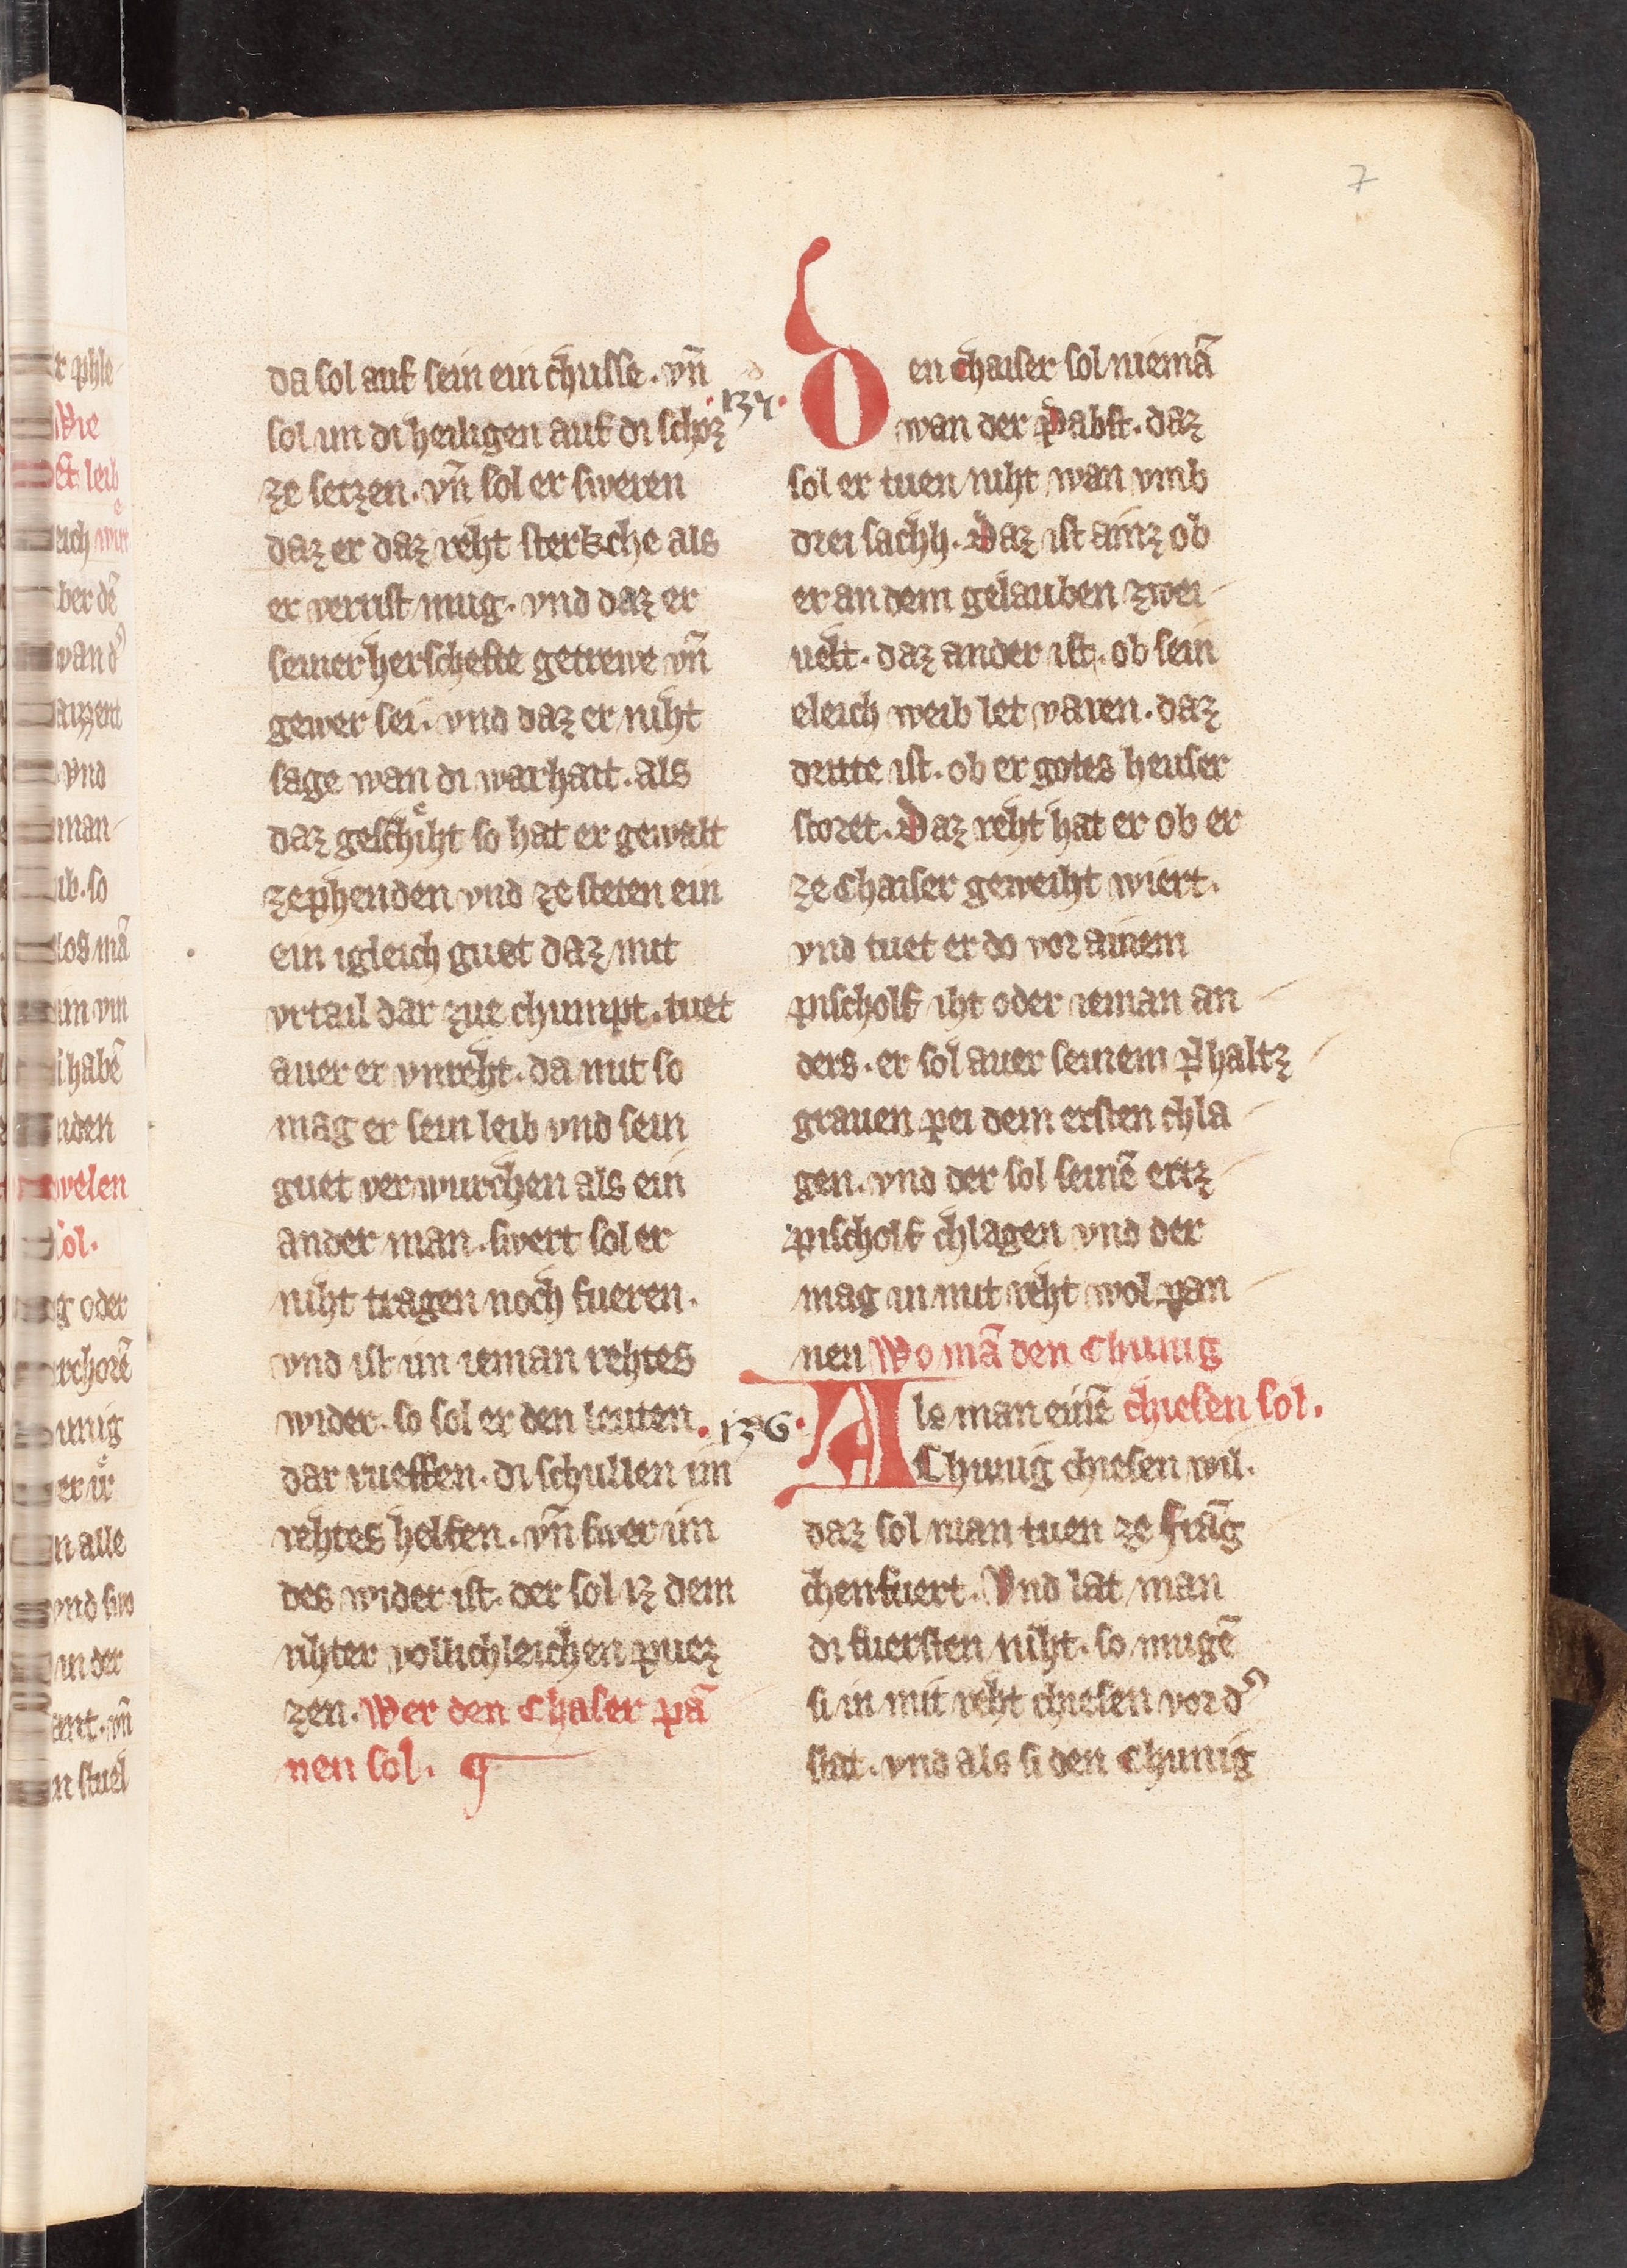 7
da sol auf sein ein chusse. vn̄
sol im di heiligen auf di schoz
ze setzen. vn̄ sol er sweren
daz er daz reht sterkche als
er verrist mug. vnd daz er
seiner herschefte getrewe vn̄
gewer sei. vnd daz er niht
sage wan di warhait. als
daz geschiͤht so hat er gewalt
ze phenden vnd ze steten ein
ein igleich guet daz mit
vrtail dar zue chumpt. tuet
auer er vnreht. da mit so
mag er sein leib vnd sein
guet verwurchen als ein
ander man. swert sol er
niht tragen noch fueren.
vnd ist im ieman rehtes
wider. so sol er den leuten
dar rueffen. di schullen im
rehtes helfen. vn̄ swer im
des wider ist. der sol iz dem
rihter vollichleichen puez
zen. Wer den Chaser pā
nen sol.
·137·
en chaiser sol niemā
wan der Pabst. daz
sol er tuen niht wan vmb
drei sachh. Daz ist ainz ob
er an dem gelauben zwei
uelt. daz ander ist. ob sein
eleich weib let varen. daz
dritte ist. ob er gotes heuser
storet. Daz reht hat er ob er
ze Chaiser geweiht wiert.
vnd tuet er do vor ainem
pischolf iht oder ieman an
ders. er sol auer seinem Phaltz
grauen pei dem ersten chla
gen. vnd der sol seinē ertz
pischolf chlagen vnd der
mag in mit reht wol pan
nen Wo mā den Chunig
·136· Als man einē chiesen sol.
Chunig chiesen wil.
daz sol man tuen ze frāg
chenfuert. Vnd lat man
di fuersten niht. so mugē
si in mit reht chiesen vor d᾽
stat. vnd als si den Chunig